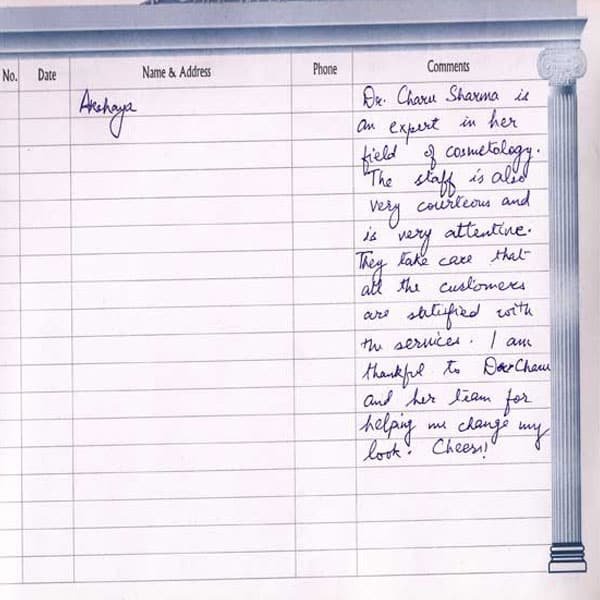 No. Date Name & Address Phone Comments
Akshaya
Dr. Charu Sharma is
an expert in her
field of cosmetology.
The staff is also
very courteous and
is very attentive.
They take care that
all the customers
are satisfied with
the services. I am
thankful to Dr. Charu
and her team for
helping me change my
look. Cheers!